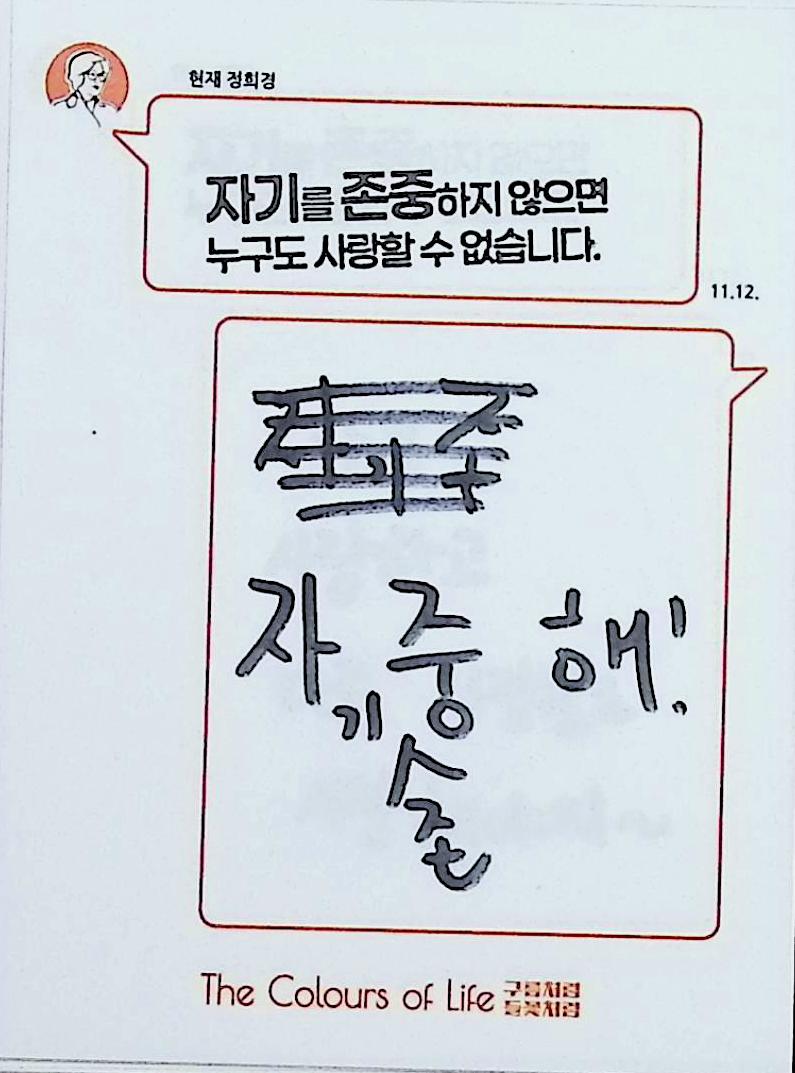 현재 정희경
자기를 존중하지 않으면
누구도 사랑할 수 없습니다.
11.12.
자 중 해!
기
존
The Colours of Life 구름처럼 들꽃처럼